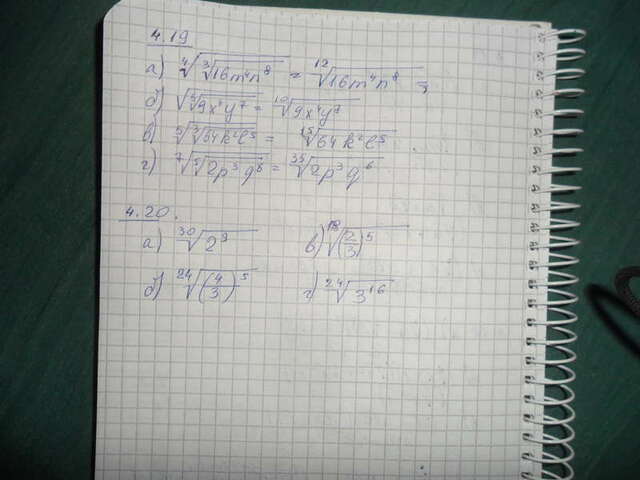 4.19
а) ∜(∛(16m⁴n⁸)) = ¹²√(16m⁴n⁸) =
б) √(⁵√(9x⁴y⁷)) = ¹⁰√(9x⁴y⁷)
в) ⁵√(³√(64k²l⁵)) = ¹⁵√(64k²l⁵)
г) ⁷√(⁵√(2p³q⁶)) = ³⁵√(2p³q⁶)
4.20.
а) ³⁰√(2⁹) в) ¹⁸√((2/3)⁵)
б) ²⁴√((4/3)⁵) г) ²⁴√(3¹⁶)